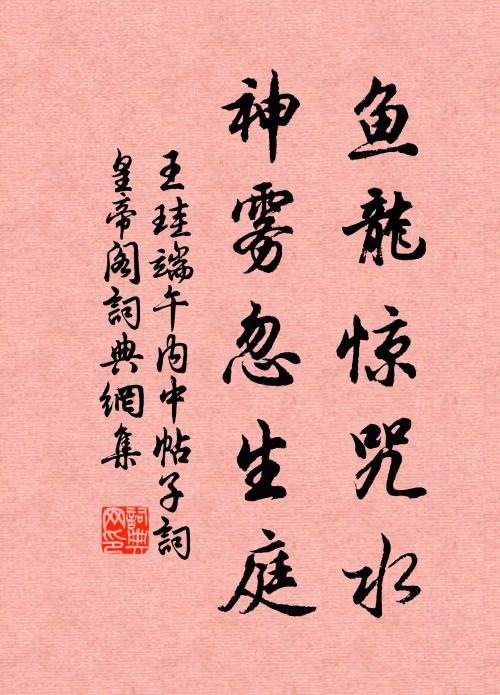 鱼龍惊咒水
神雾忽生庭
王珪端午内中帖子詞
皇帝阁詞典網集
詞典网印